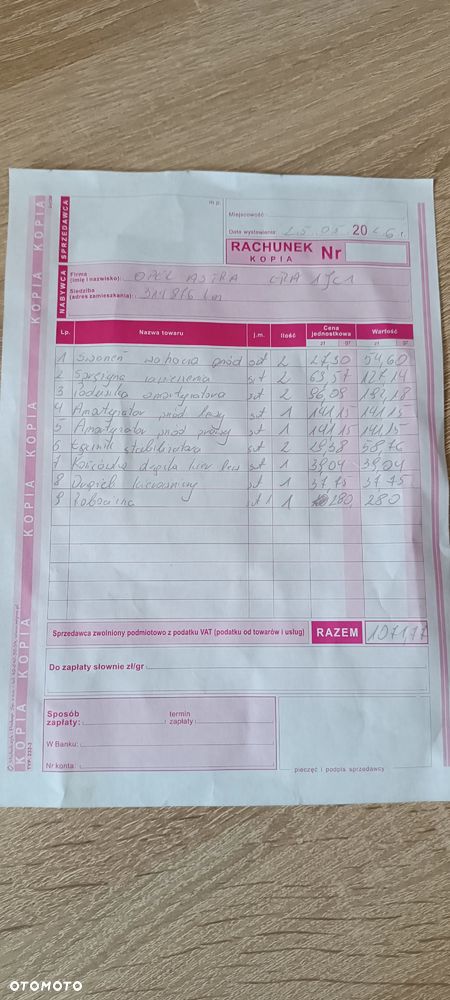 m.p.
SPRZEDAWCA
Miejscowość
Data wystawienia 25.01 20 26 r.
RACHUNEK Nr
KOPIA
NABYWCA
Firma (imię i nazwisko): OPEL ASTRA
Siedziba (adres zamieszkania): km
Lp. Nazwa towaru j.m. Ilość Cena jednostkowa Wartość
zł gr zł gr
1 Sworzeń wahacza przód szt 2 27,30 54,60
2 Sprężyna zawieszenia szt 2 63,57 127,14
3 Poduszka amortyzatora szt 2 96,09 192,18
4 Amortyzator przód lewy szt 1 141,15 141,15
5 Amortyzator przód prawy szt 1 141,15 141,15
6 Łącznik stabilizatora szt 2 29,38 58,76
7 Końcówka drążka kier szt 1 39,04 39,04
8 Drążek kierowniczy szt 1 37,75 37,75
9 Robocizna 1 280 280
Sprzedawca zwolniony podmiotowo z podatku VAT (podatku od towarów i usług) RAZEM 1071,77
Do zapłaty słownie zł/gr
Sposób zapłaty: termin zapłaty
W Banku:
Nr konta:
pieczęć i podpis sprzedawcy
KOPIA KOPIA KOPIA KOPIA KOPIA KOPIA
OTOMOTO